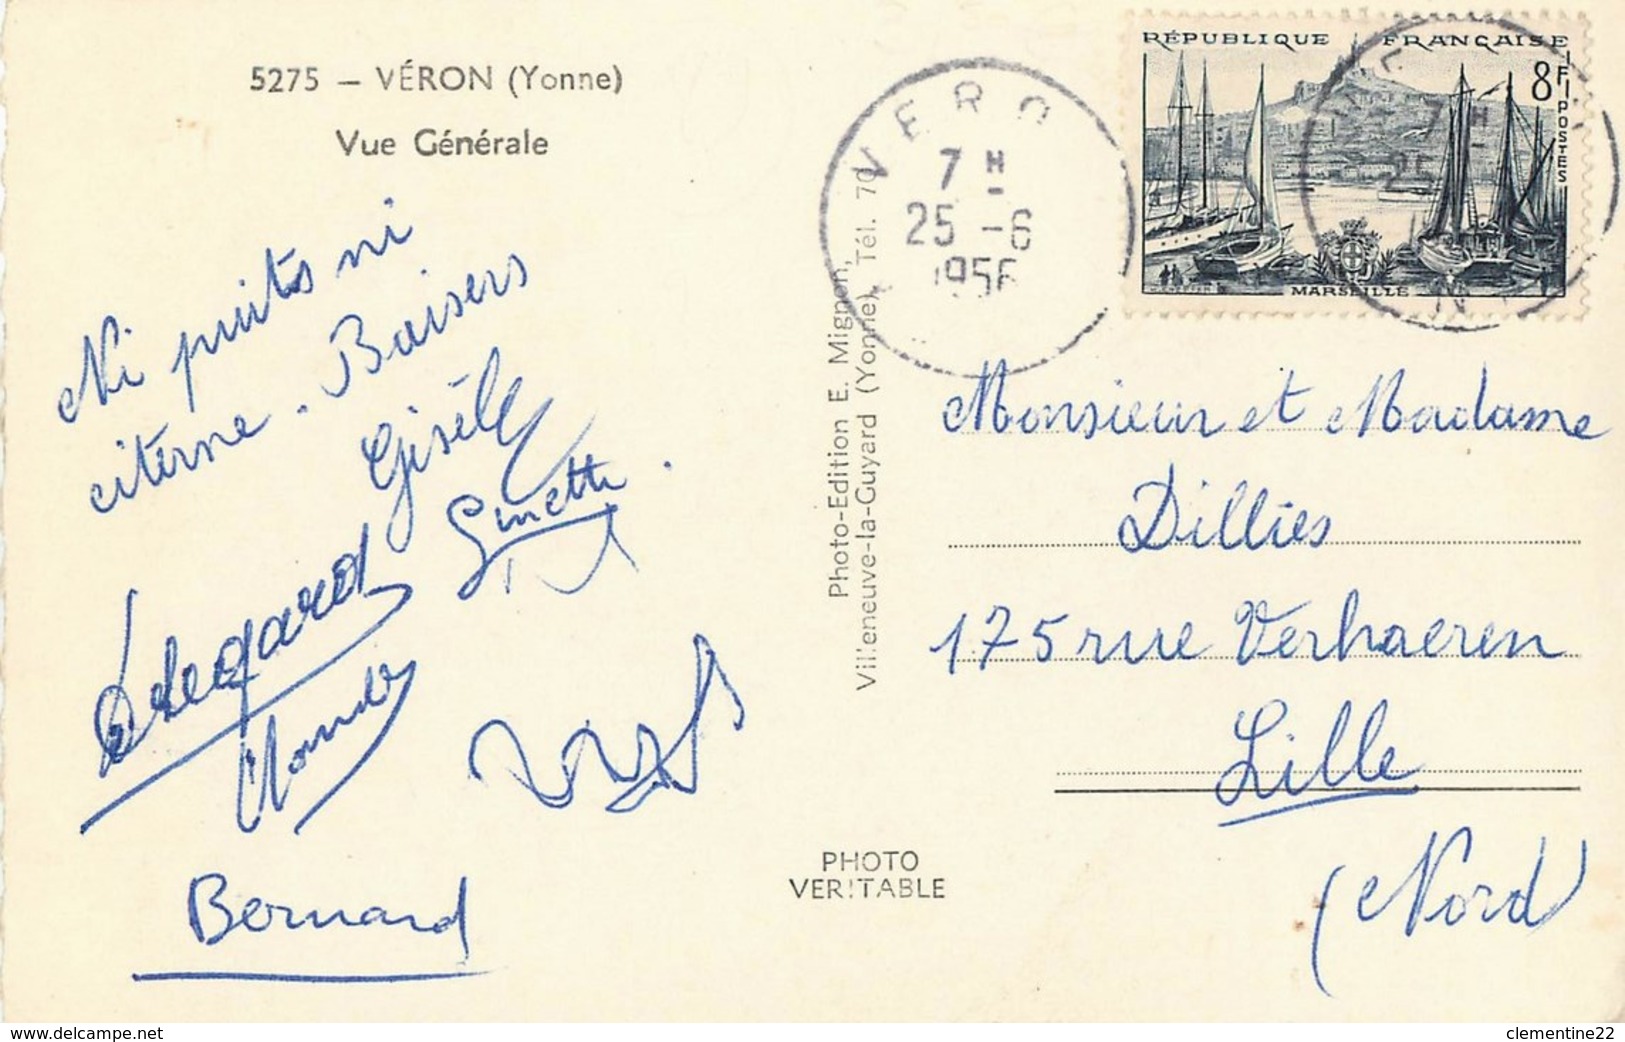 5275 — VÉRON (Yonne)
Vue Générale
Ni puits ni
citerne. Baisers
Gisèle
Ginette
Bernard
PHOTO
VERITABLE
Photo-Edition E. Mignon,
Villeneuve-la-Guyard (Yonne), Tél. 70
VERO
7 H
25 -6
1956
RÉPUBLIQUE FRANÇAISE
8F
POSTES
MARSEILLE
7 H
25
Monsieur et Madame
Dillies
175 rue Verhaeren
Lille
(Nord)
www.delcampe.net
clementine22